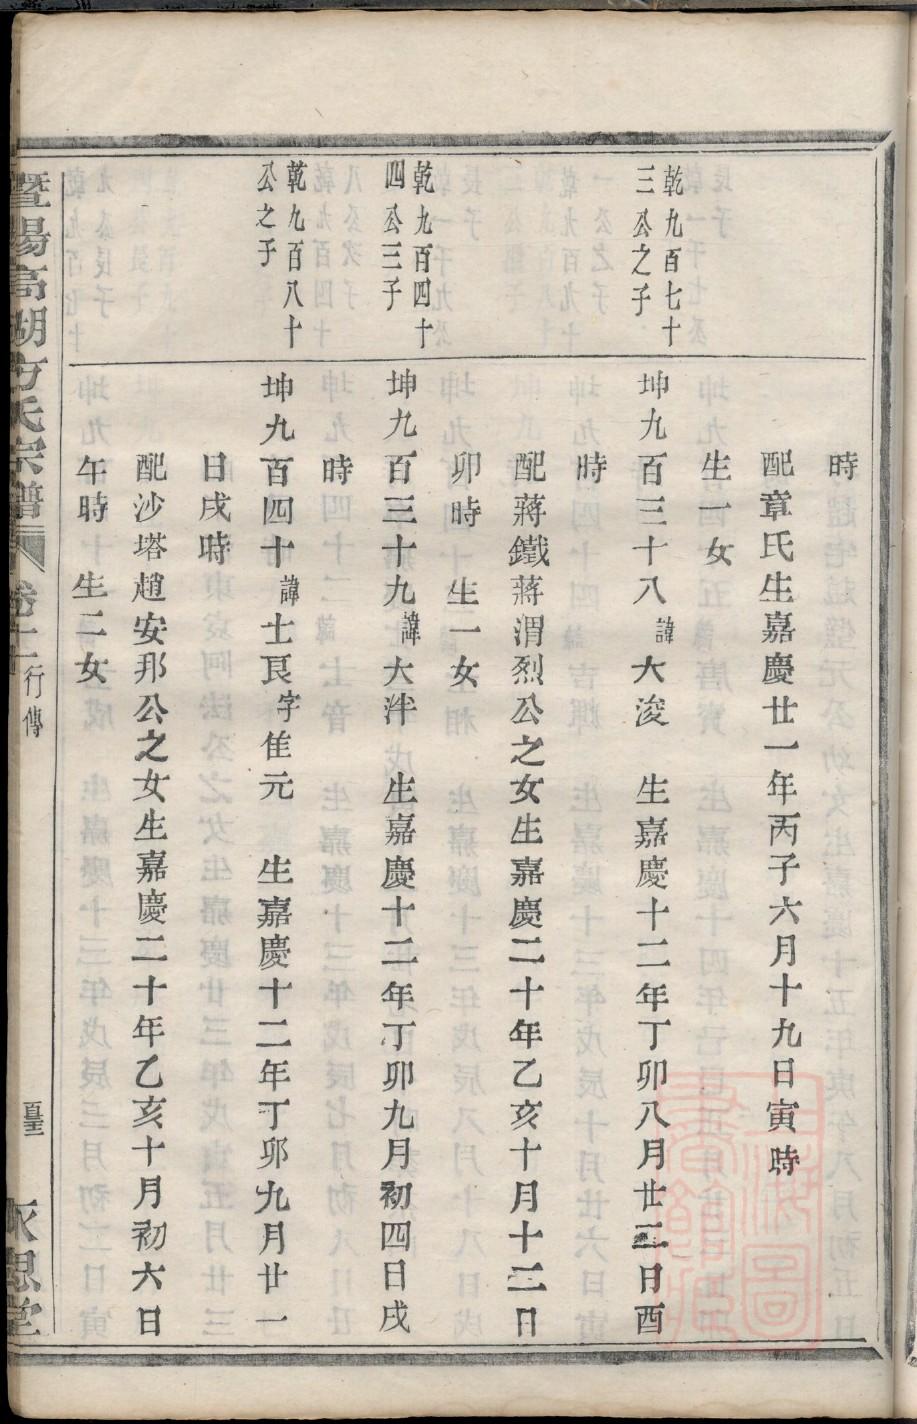 時
配章氏生嘉慶廿一年丙子六月十九日寅時
生一女
乾九百七十
三公之子
坤九百三十八諱大浚 生嘉慶十二年丁卯八月廿三日酉
時
配蔣鐵蔣渭烈公之女生嘉慶二十年乙亥十月十二日
卯時 生一女
乾九百四十
四公三子
坤九百三十九諱大泮 生嘉慶十二年丁卯九月初四日戌
時
乾九百八十
公之子
坤九百四十諱士艮字隹元 生嘉慶十二年丁卯九月廿一
日戌時
配沙塔趙安邦公之女生嘉慶二十年乙亥十月初六日
午時 生二女
暨陽高湖方氏宗譜 卷 行傳 思堂